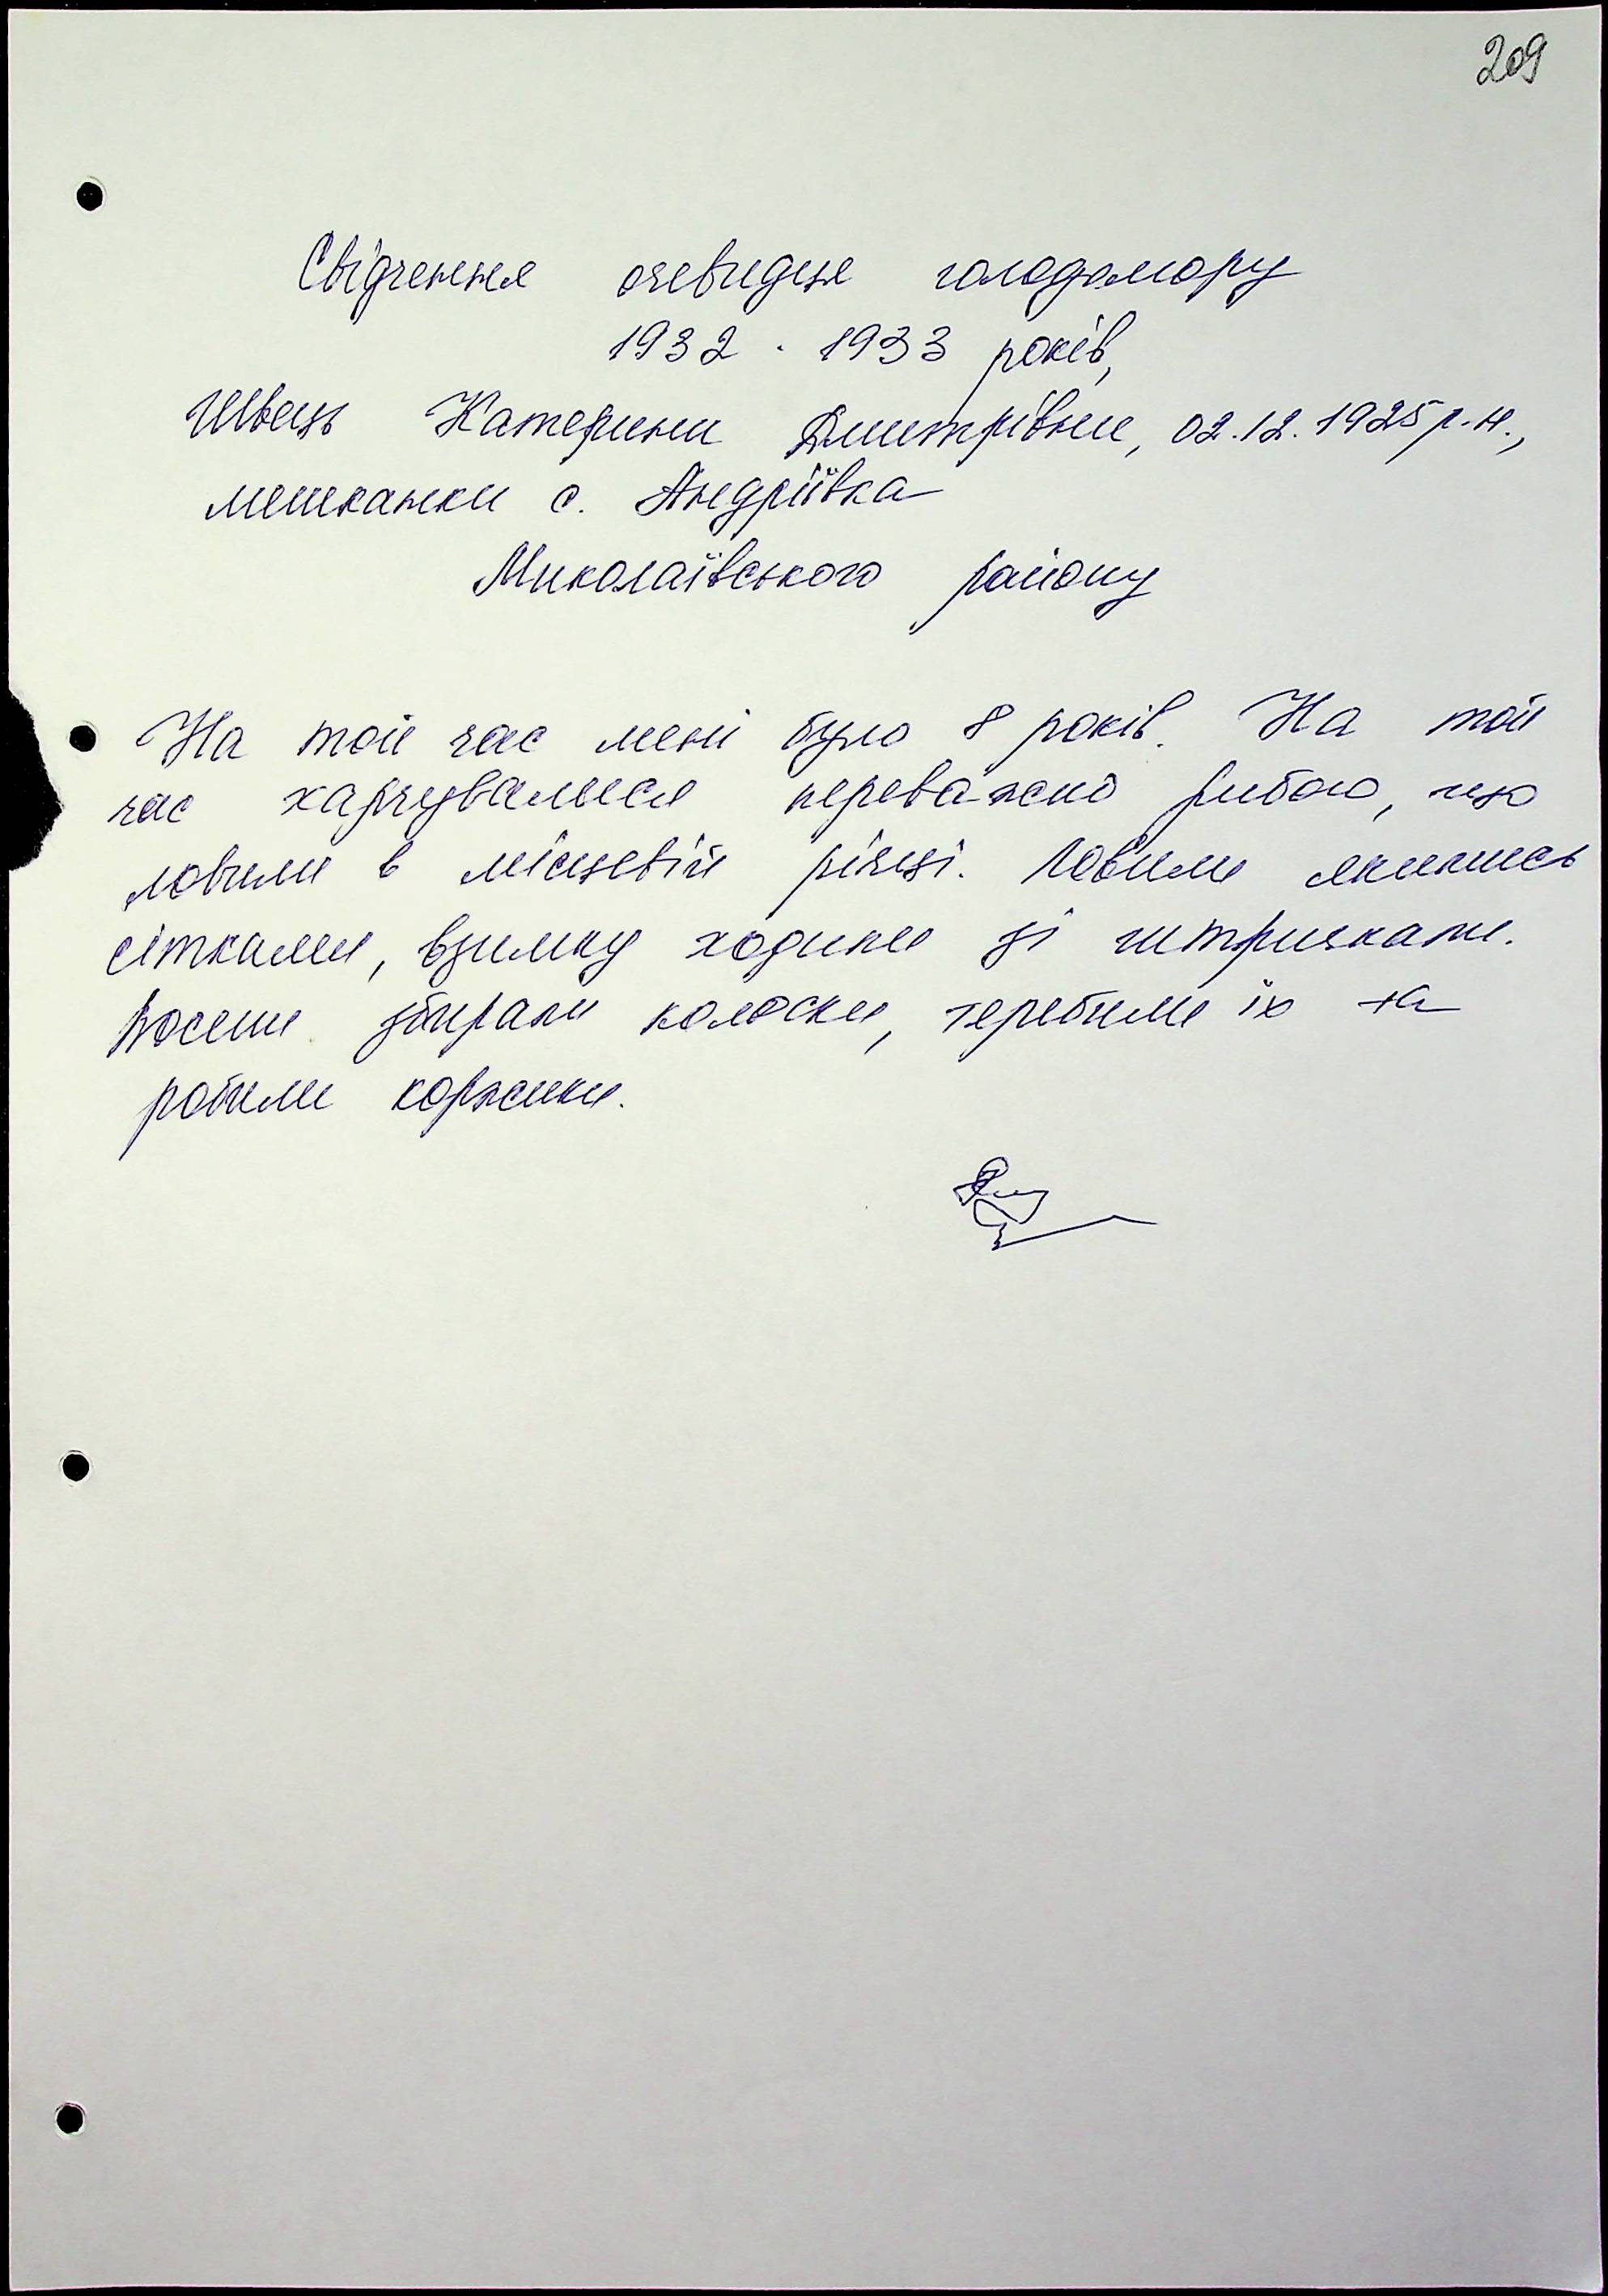 209
Свідчення очевидця голодомору
1932 - 1933 років,
Швець Катерини Дмитрівни, 02.12.1925 р.н.,
мешканки с. Андріївка
Миколаївського району
На той час мені було 8 років. На той
час харчувалися переважно рибою, що
ловили в місцевій річці. Ловили якимись
сітками, взимку ходили зі штричками.
Восени збирали колоски, теребили їх та
робили коржики.